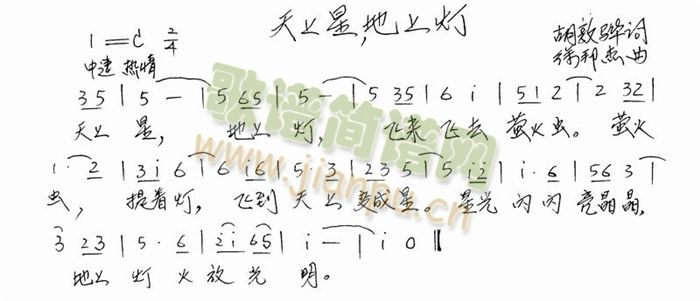 天上星,地上灯
1=C 2/4
胡敦骅词
中速 热情
徐邦杰曲
3 5 | 5 — | 5 6 5 | 5 — | 5 3 5 | 6 i | 5 1 2 | 2 3 2 |
天上 星, 地上 灯, 飞来 飞去 萤火虫。 萤火
1 · 2 | 3 i 6 | 6 i 6 | 5 · 3 | 2 3 5 | 5 i 2 | i · 6 | 5 6 3 |
虫, 提着灯, 飞到 天上 变成星。 星光 闪闪 亮晶晶,
3 2 3 | 5 · 6 | 2 i 6 5 | i — | i 0 ‖
地上 灯 火 放 光 明。
歌谱简谱网
www.jianpu.cn